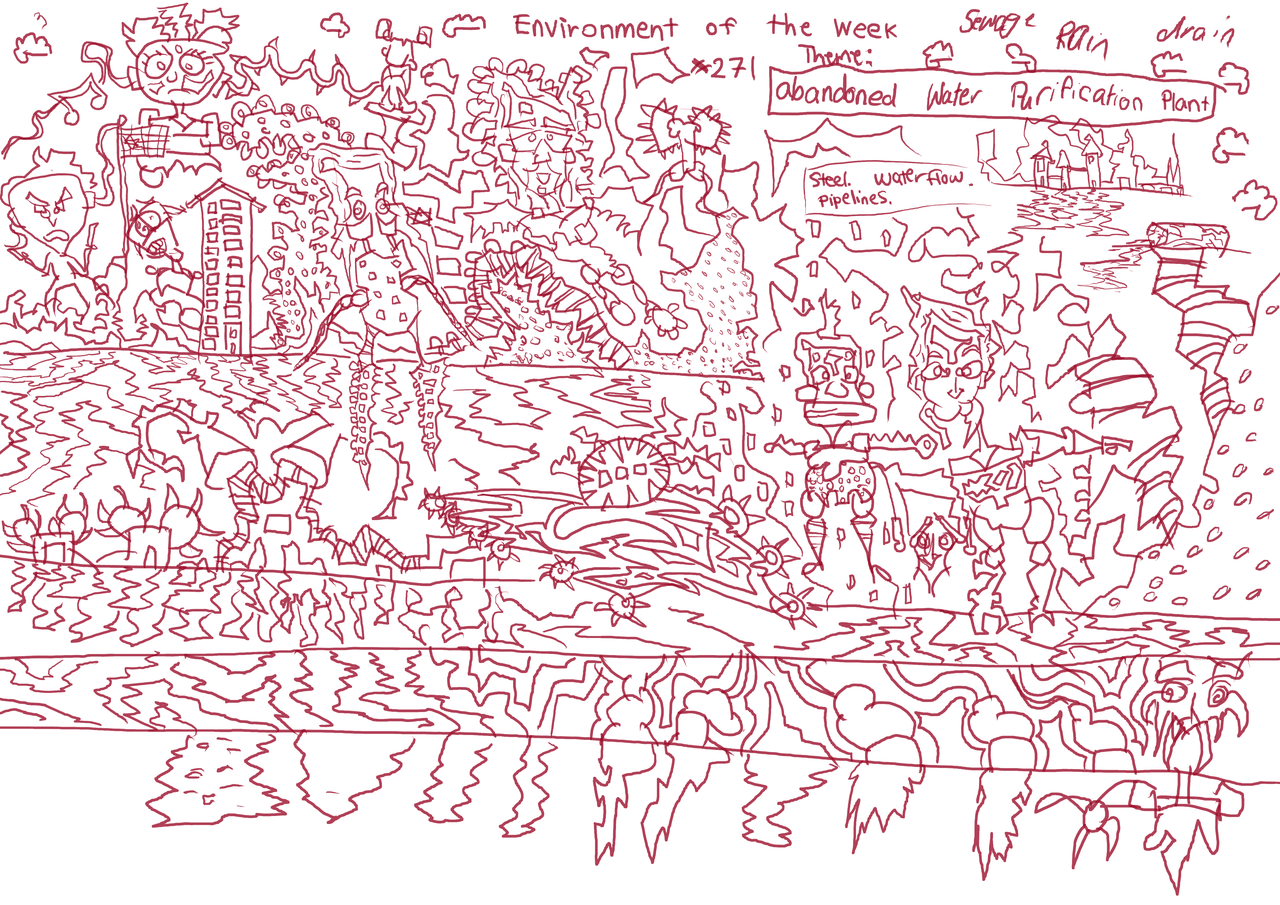 Environment of the Week
#271
Sewage Rain drain
Theme:
abandoned Water Purification Plant
Steel. Waterflow.
Pipelines.